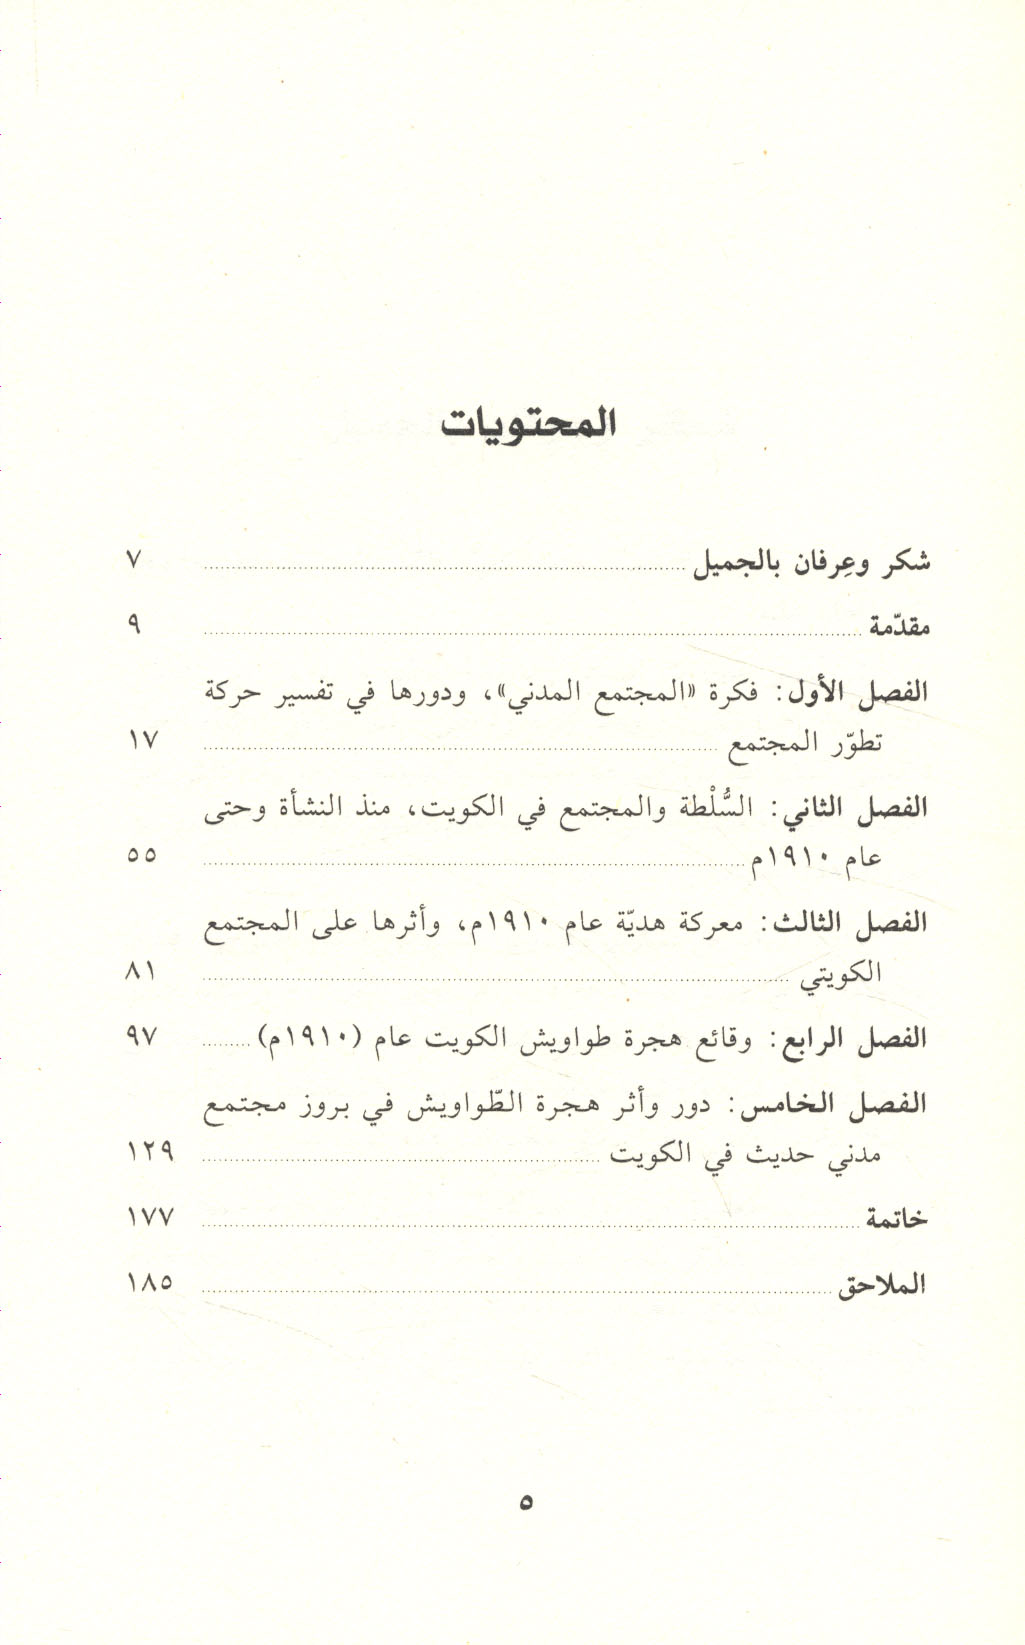 المحتويات
شكر وعِرفان بالجميل ... ٧
مقدّمة ... ٩
الفصل الأول: فكرة «المجتمع المدني»، ودورها في تفسير حركة
تطوّر المجتمع ... ١٧
الفصل الثاني: السُّلْطة والمجتمع في الكويت، منذ النشأة وحتى
عام ١٩١٠م ... ٥٥
الفصل الثالث: معركة هديّة عام ١٩١٠م، وأثرها على المجتمع
الكويتي ... ٨١
الفصل الرابع: وقائع هجرة طواويش الكويت عام (١٩١٠م) ... ٩٧
الفصل الخامس: دور وأثر هجرة الطّواويش في بروز مجتمع
مدني حديث في الكويت ... ١٢٩
خاتمة ... ١٧٧
الملاحق ... ١٨٥
٥